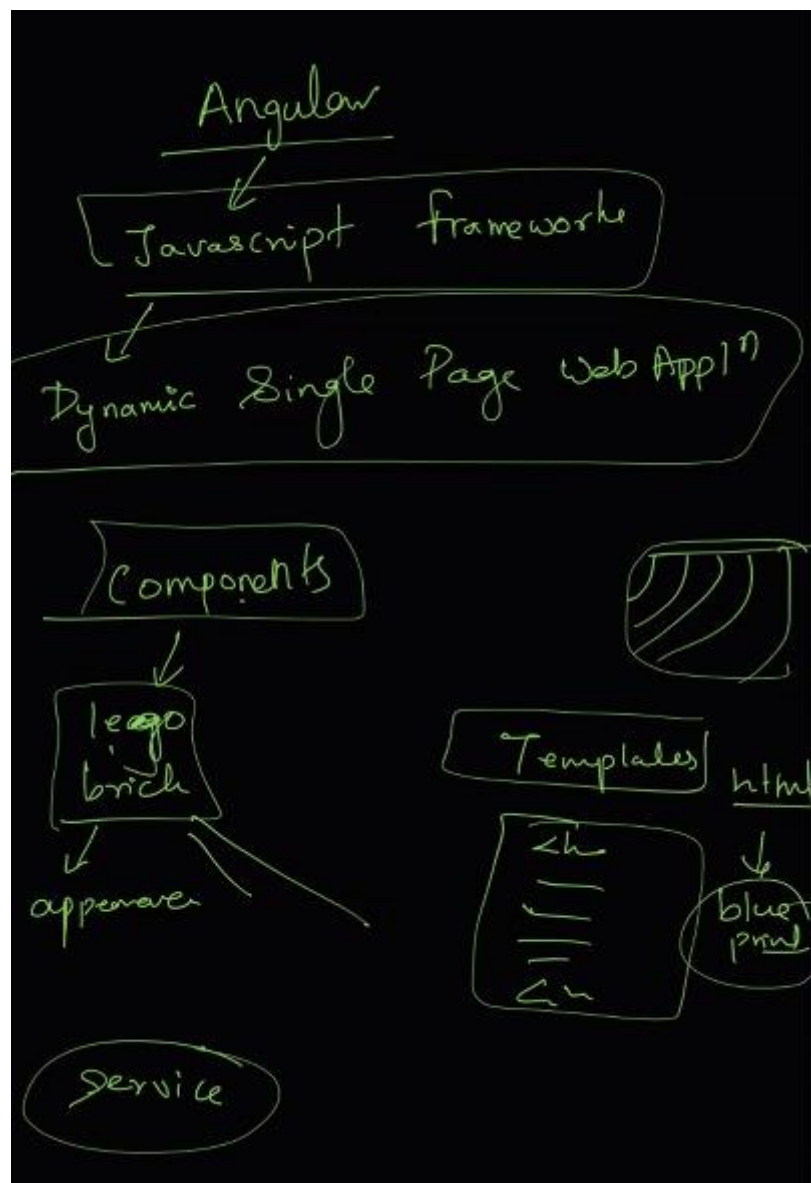 Angular
Javascript framework
Dynamic Single Page Web Appl^n
Components
lego
brick
Templates
html
<h
blue
print
Service